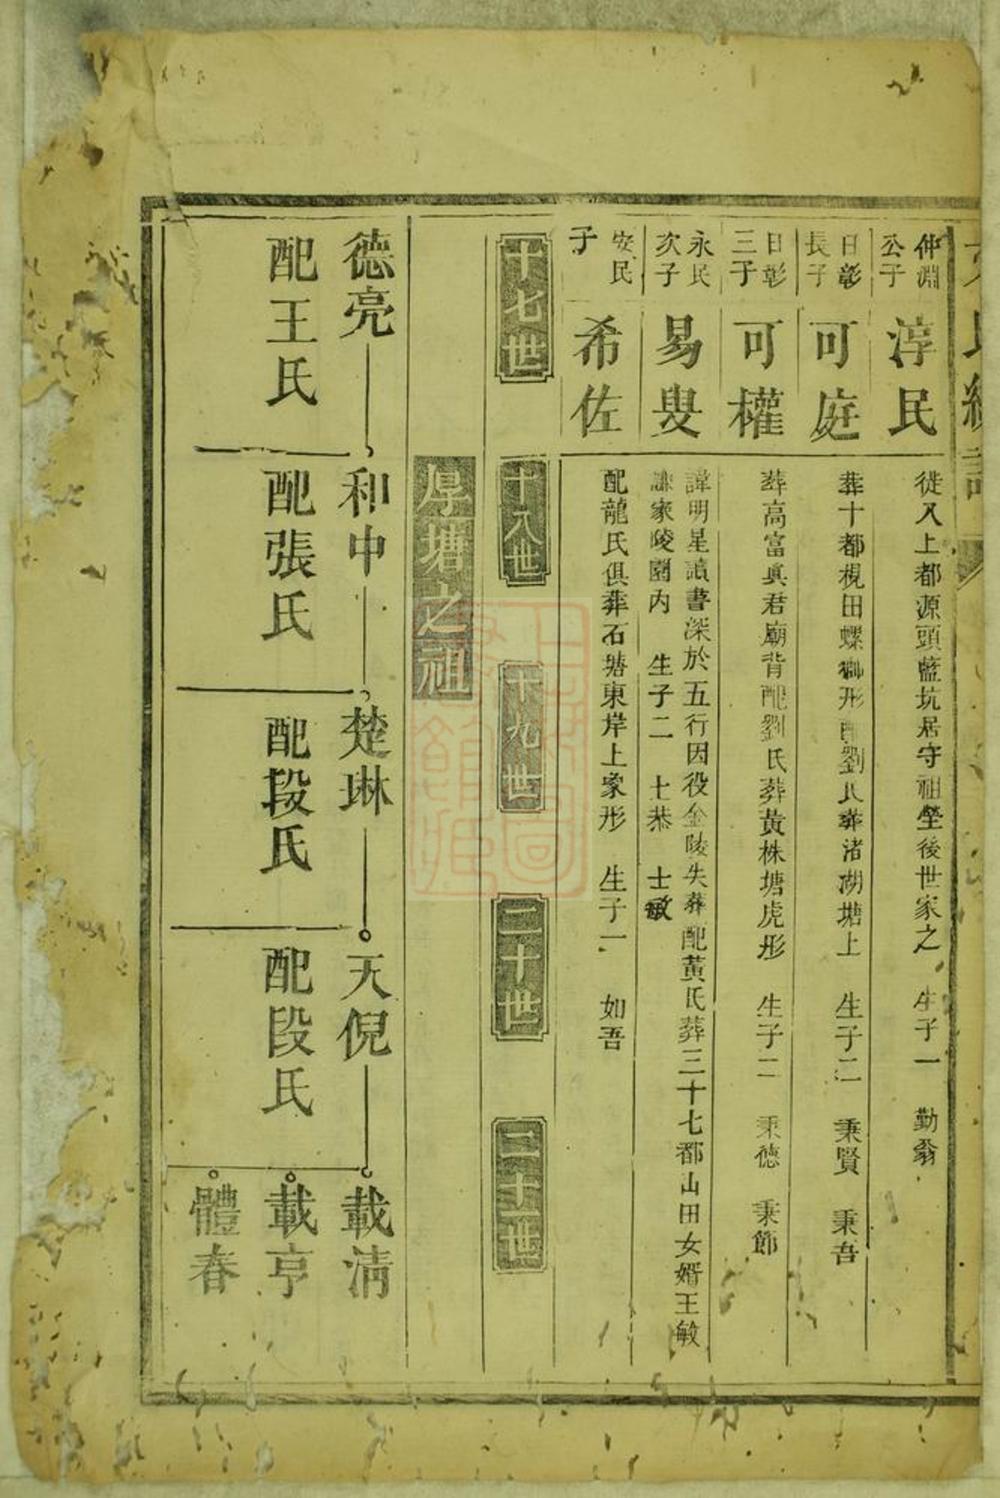 仲淵公子
淳民
從入上都源頭藍坑居守祖塋後世家之 生子一 勤翁
日彰長子
可庭
葬十都視田螺獅形配劉氏葬渚湖塘上 生子二 秉賢 秉吾
日彰三子
可權
葬高富真君廟背配劉氏葬黃株塘虎形 生子二 秉德 秉節
永民次子
易叟
諱明星讀書深於五行因役金陵失葬配黃氏葬三十七都山田女婿王敏
謙家陵園内 生子二 士恭 士敏
安民子
希佐
配龍氏俱葬石塘東岸上象形 生子一 如吾
十七世
十八世
十九世
二十世
二十一世
厚塘之祖
德亮
配王氏
和中
配張氏
楚琳
配段氏
天倪
配段氏
載清
載亨
體春